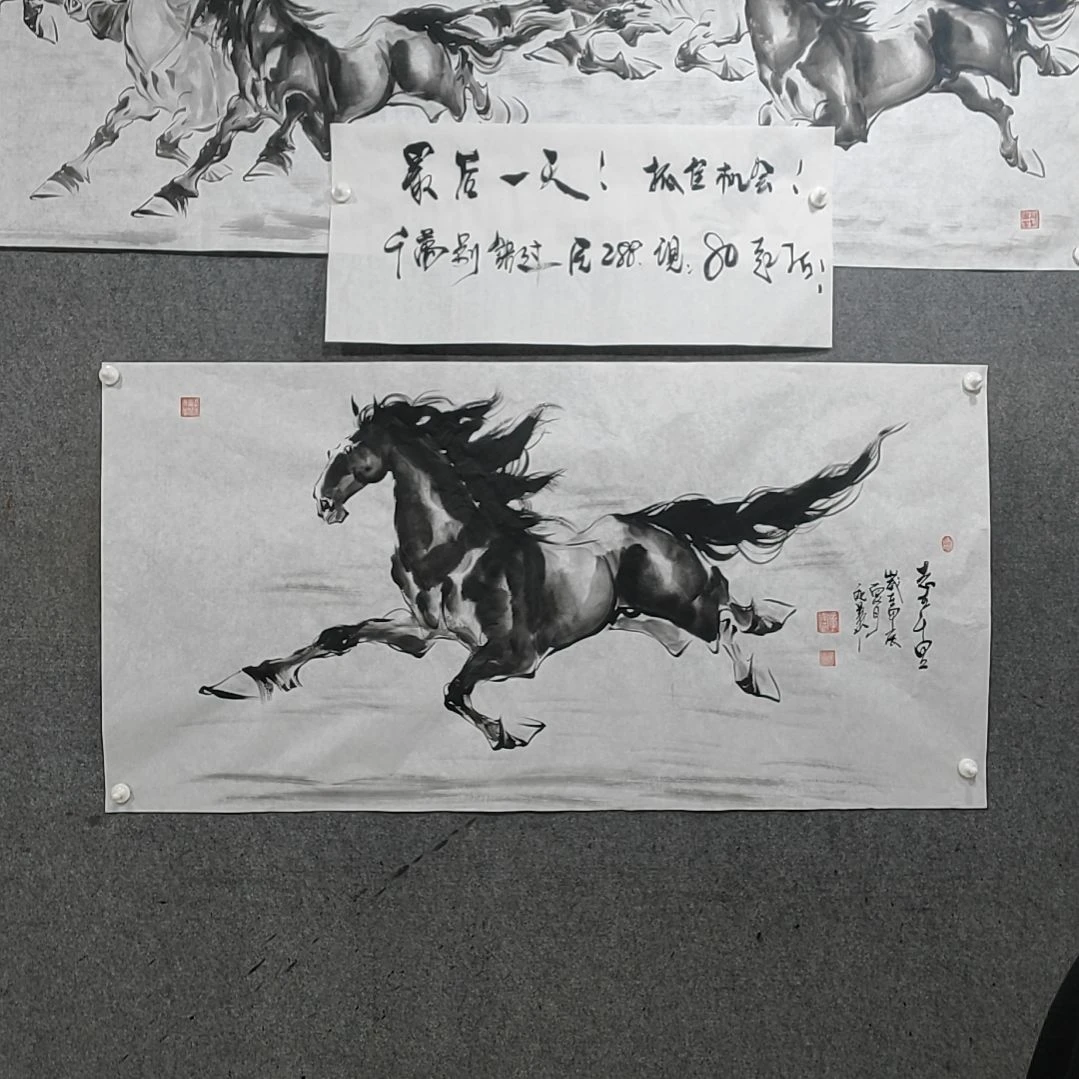 最后一天！抓住机会！
千万别错过 元288. 现：80起拍！
志在千里
岁在甲辰
夏月